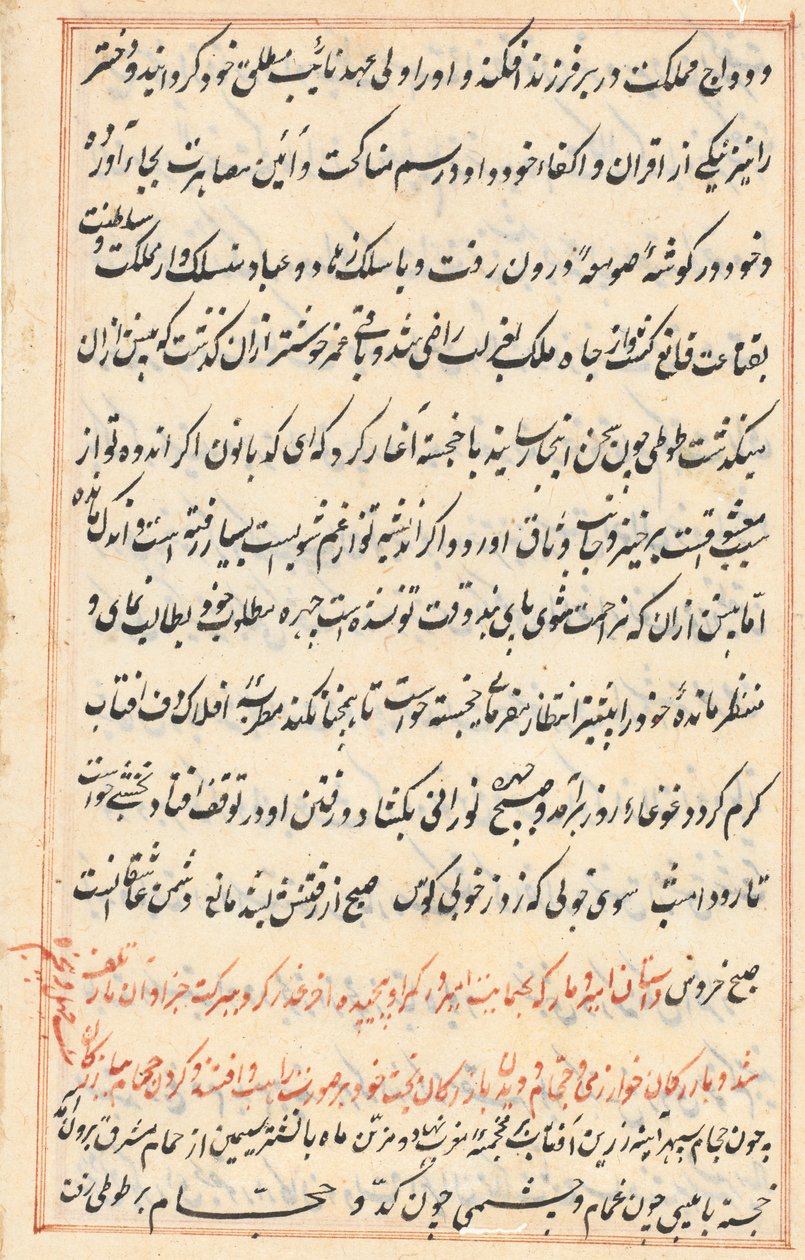 و دواج مملکت در بر فرزند افکند و او را ولی عهد نائب مطلق خود کردانید و دختر
را نیز بیکی از اقران و اکفاء خود داد و در رسم مناکحت و آئین مصاهرت بجاء آورده
و خود در کوشهٔ صومعهٔ درون رفت و با سلک زهاد و عباد منسلک و از مملکت و سلطنت
بقناعت قانع کشت و از جاه ملک بعزلت راضی شد و باقی عمر خوشتر ازان کذشت که پیش ازان
میکذشت طوطی چون سخن اینجا رسانید با خجسته آغاز کرد که ای کدبانو اکر اندوه تو از
سبب معشوقست برخیز و جانب وثاق او رو و اکر اندیشه تو از غم شویست بسیار رفته است و اندک مانده
اما پیش ازان که مزاحمت شوی پای بند وقت تو نشده است چهره مطلوب خود بطالب نمای و
منتظر ماندهٔ خود را بیشتر انتظار مفرمای خجسته خواست تا همچنان کند مطربهٔ افلاک دف افتاب
کرم کرد و غوغاء روز برآمد و صبح چهره نورانی بکشاد و رفتن او در توقف افتاد نخشبی خواست
تا رود امشب سوی خوبی که زد ز خوبی کوس صبح از رفتنش بشد مانع دشمن عاشقانست
صبح خروس داستان امیر و مار که بحمایت امیر در کمر او پیچیده اخر غدر کرد و ببرکت جزاو ان مار تلف
شد و بازرکان خوارزمی و حجام و دیدن بازرکان بخت خود بر صورت راهب و افتنه و کردن حجام
چون حجام سپهر آینه زرین آفتاب در محجمهٔ مغرب نهاد و مزین ماه با نشتر سیمین از حمام مشرق برون آمد
خجسته با عیبی چون غمام و چشمی چون کد و حجام بر طوطی رفت